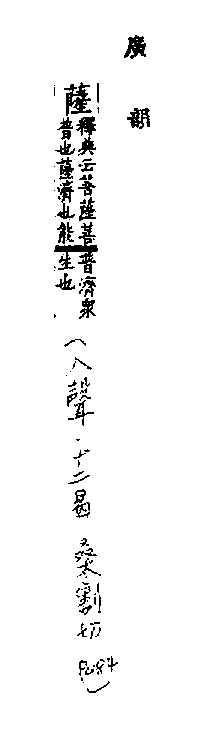 廣韻
薩
釋典云菩薩菩普濟眾
普也薩濟也能生也
(入聲·十二曷 桑割切 P.484)